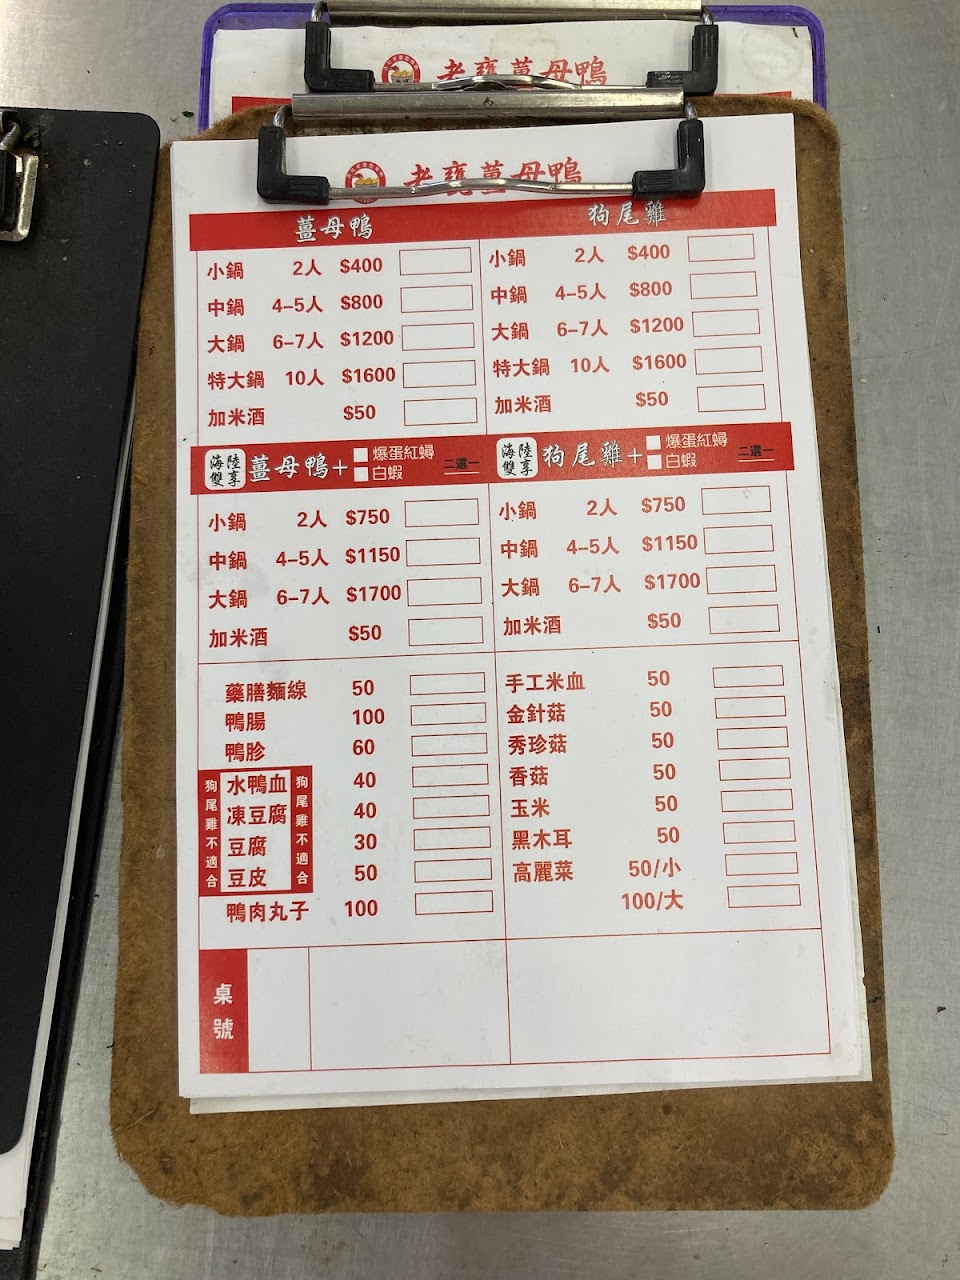 老甕薑母鴨
老甕薑母鴨
薑母鴨
小鍋 2人 $400
中鍋 4–5人 $800
大鍋 6–7人 $1200
特大鍋 10人 $1600
加米酒 $50
狗尾雞
小鍋 2人 $400
中鍋 4–5人 $800
大鍋 6–7人 $1200
特大鍋 10人 $1600
加米酒 $50
海陸雙享 薑母鴨+ 爆蛋紅蟳 白蝦 二選一
小鍋 2人 $750
中鍋 4–5人 $1150
大鍋 6–7人 $1700
加米酒 $50
海陸雙享 狗尾雞+ 爆蛋紅蟳 白蝦 二選一
小鍋 2人 $750
中鍋 4–5人 $1150
大鍋 6–7人 $1700
加米酒 $50
藥膳麵線 50
鴨腸 100
鴨胗 60
狗尾雞不適合
水鴨血 40
凍豆腐 40
豆腐 30
豆皮 50
狗尾雞不適合
鴨肉丸子 100
手工米血 50
金針菇 50
秀珍菇 50
香菇 50
玉米 50
黑木耳 50
高麗菜 50/小
100/大
桌號